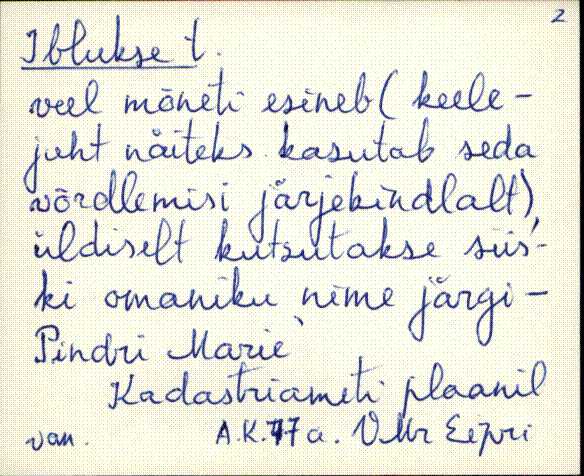 2
Iblukse t.
veel mõneti esineb (keele-
juht näiteks kasutab seda
võrdlemisi järjekindlalt),
üldiselt kutsutakse siis-
ki omaniku nime järgi –
Pindri Marie`
Kadastriameti plaanil
van. A.K. 77 a. VMr Eipri